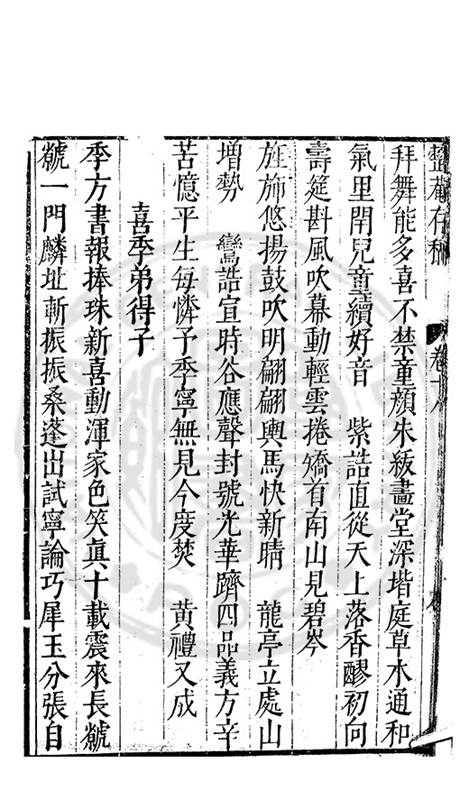 整菴存稿 卷十八
拜舞能多喜不禁童顏朱紱畫堂深堦庭草木通和
氣里閈兒童續好音　紫誥直從天上落香醪初向
壽筵斟風吹幕動輕雲捲矯首南山見碧岑
旌旆悠揚鼓吹明翩翩輿馬快新晴　龍亭立處山
增勢　鸞誥宣時谷應聲封號光華躋四品義方辛
苦憶平生每憐予季寧無見今度焚　黃禮又成
喜季弟得子
季方書報捧珠新喜動渾家色笑眞十載震來長虩
虩一門麟址漸振振桑蓬出試寧論巧犀玉分張自